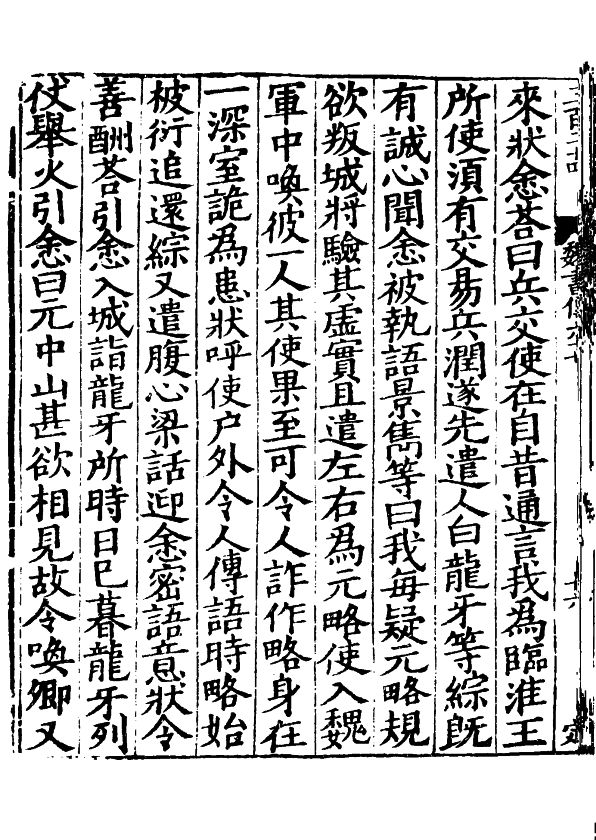 來狀悆荅曰兵交使在自昔通言我為臨淮王
所使須有交易兵潤遂先遣人白龍牙等綜旣
有誠心聞悆被執語景雋等曰我每疑元略規
欲叛城將驗其虛實且遣左右為元略使入魏
軍中喚彼一人其使果至可令人詐作略身在
一深室詭為患狀呼使户外令人傳語時略始
被衍追還綜又遣腹心梁話迎悆密語意狀令
善酬荅引悆入城詣龍牙所時日已暮龍牙列
仗舉火引悆曰元中山甚欲相見故令喚卿又